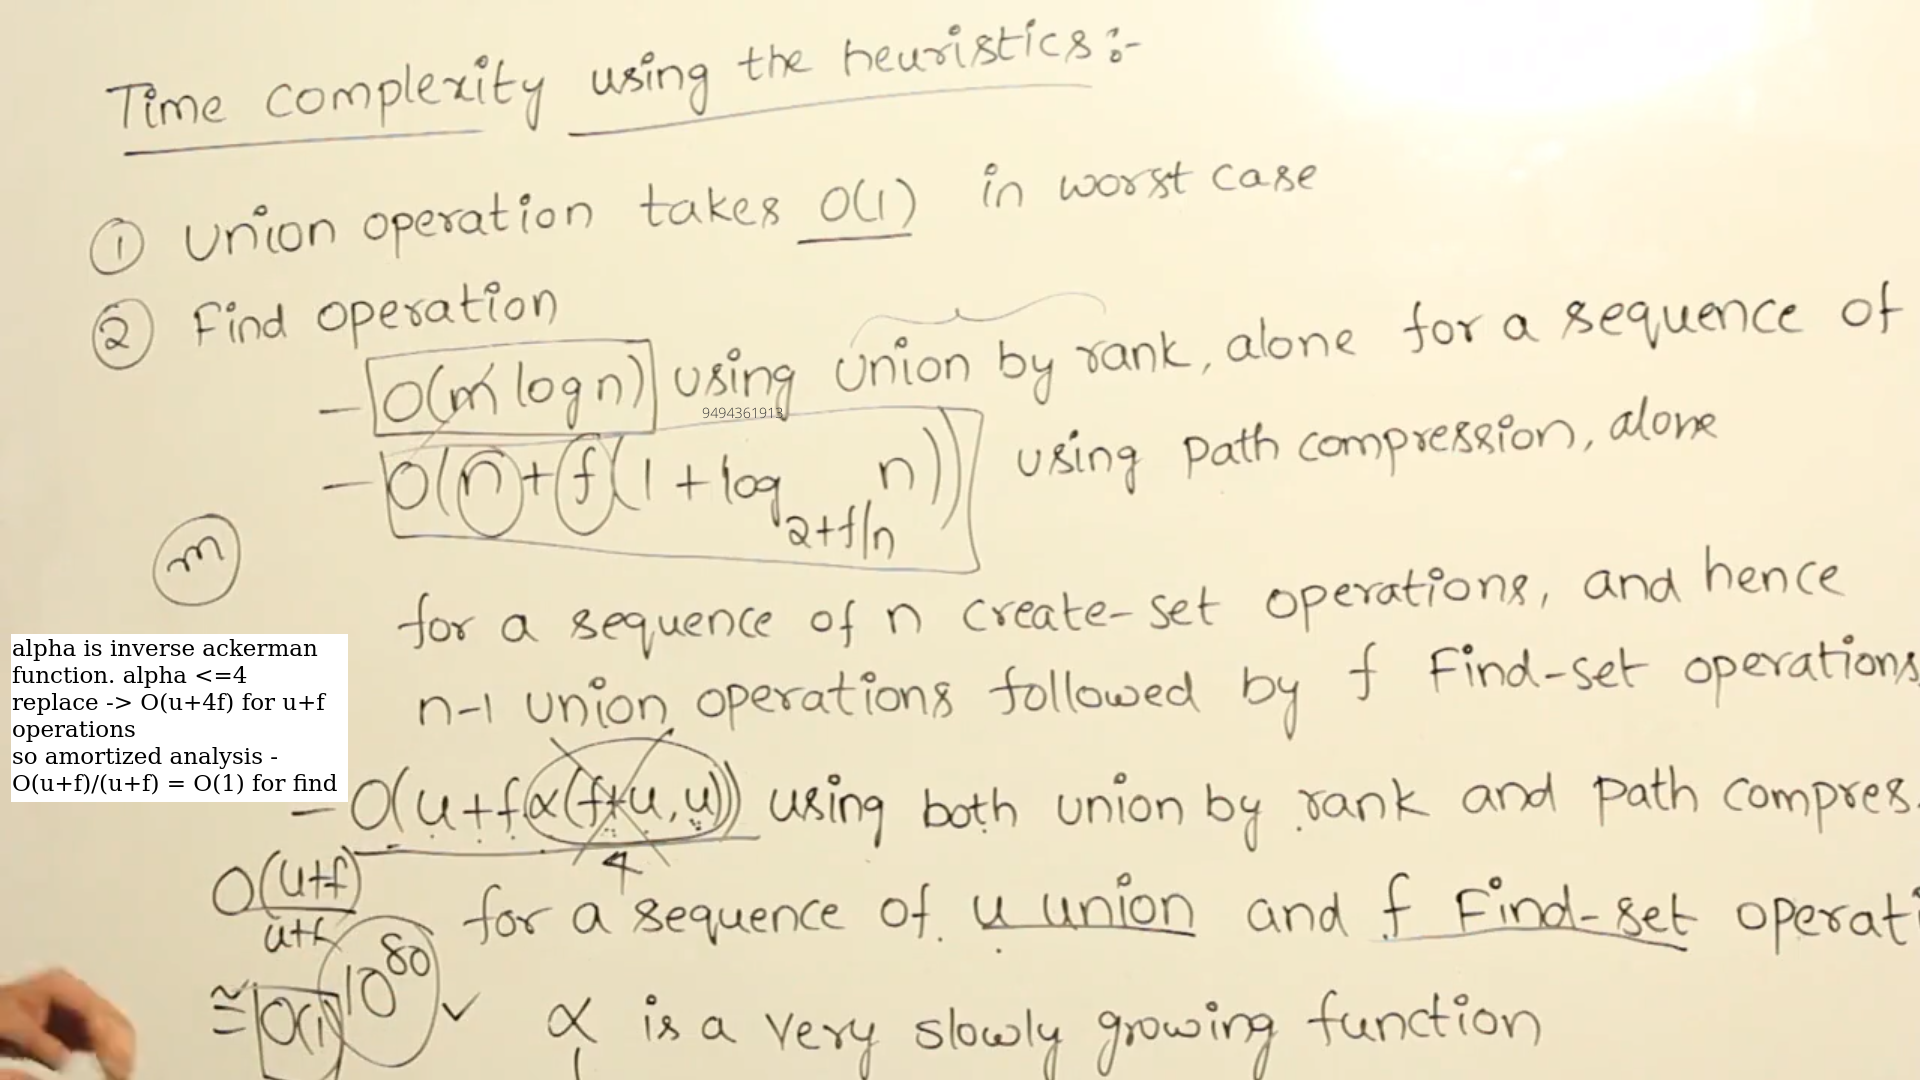 Time complexity using the heuristics:-
① Union operation takes O(1) in worst case
② Find operation
- O(m log n) using union by rank, alone for a sequence of
9494361913
- O(n+f(1+log_{2+f/n} n)) using path compression, alone
m
for a sequence of n create-set operations, and hence
n-1 union operations followed by f Find-set operations
alpha is inverse ackerman
function. alpha <=4
replace -> O(u+4f) for u+f
operations
so amortized analysis -
O(u+f)/(u+f) = O(1) for find
- O(u+f α(f+u,u)) using both union by rank and path compres.
4
O(u+f)
u+f
for a sequence of u union and f Find-set operati
≅ O(1) 10^80 ✓
α is a very slowly growing function